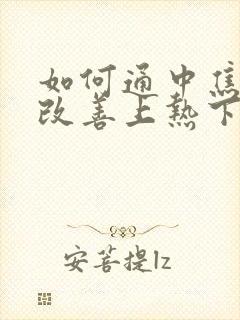 如何通中焦
改善上热下
安菩提lz